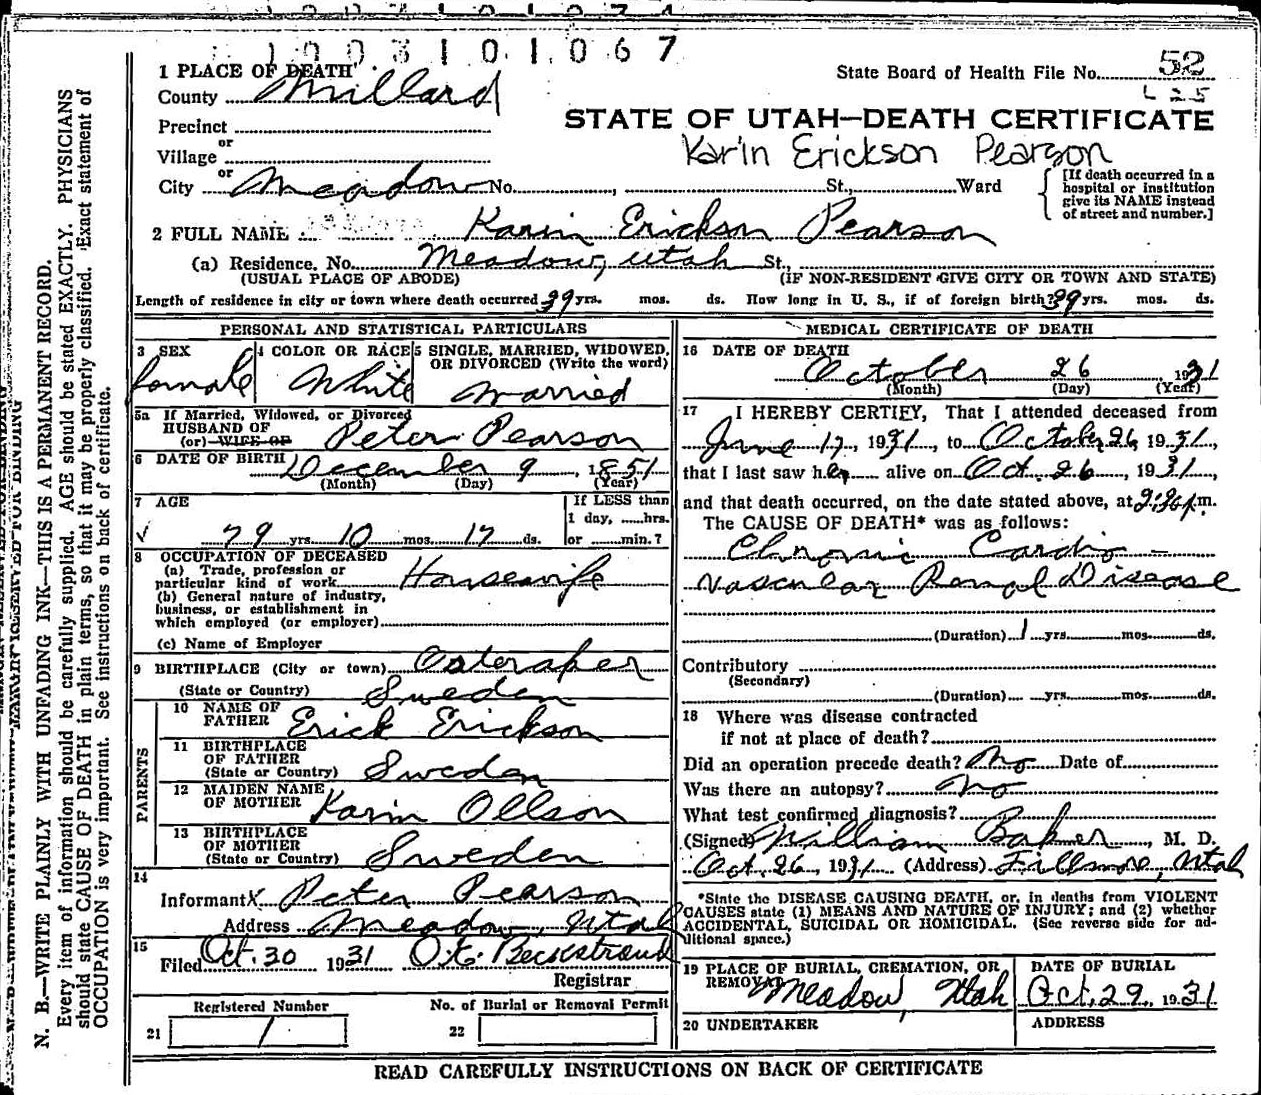 1003101067
1 PLACE OF DEATH
State Board of Health File No. 52
County Millard
L 25
STATE OF UTAH—DEATH CERTIFICATE
Precinct
Karin Erickson Pearson
or
Village
or
City Meadow No. , St., Ward
[If death occurred in a
hospital or institution
give its NAME instead
of street and number.]
2 FULL NAME Karin Erickson Pearson
(a) Residence. No. Meadow, Utah St.,
(USUAL PLACE OF ABODE) (IF NON-RESIDENT GIVE CITY OR TOWN AND STATE)
Length of residence in city or town where death occurred 39 yrs. mos. ds. How long in U. S., if of foreign birth? 39 yrs. mos. ds.
PERSONAL AND STATISTICAL PARTICULARS
3 SEX
female
4 COLOR OR RACE
White
5 SINGLE, MARRIED, WIDOWED,
OR DIVORCED (Write the word)
Married
5a If Married, Widowed, or Divorced
HUSBAND OF
(or) WIFE OF Peter Pearson
6 DATE OF BIRTH December 9, 1851
(Month) (Day) (Year)
7 AGE
If LESS than
1 day, hrs.
79 yrs. 10 mos. 17 ds.
or min.?
8 OCCUPATION OF DECEASED
(a) Trade, profession or
particular kind of work Housewife
(b) General nature of industry,
business, or establishment in
which employed (or employer)
(c) Name of Employer
9 BIRTHPLACE (City or town) Osteraker
(State or Country) Sweden
PARENTS
10 NAME OF
FATHER Erick Erickson
11 BIRTHPLACE
OF FATHER
(State or Country) Sweden
12 MAIDEN NAME
OF MOTHER Karin Ollson
13 BIRTHPLACE
OF MOTHER
(State or Country) Sweden
14
Informant X Peter Pearson
Address Meadow, Utah
15
Filed Oct. 30 1931 O.C. Beckstrand
Registrar
Registered Number No. of Burial or Removal Permit
21 1 22
MEDICAL CERTIFICATE OF DEATH
16 DATE OF DEATH
October 26 1931
(Month) (Day) (Year)
17 I HEREBY CERTIFY, That I attended deceased from
June 17, 1931, to October 26, 1931,
that I last saw her alive on Oct. 26, 1931,
and that death occurred, on the date stated above, at p.m.
The CAUSE OF DEATH* was as follows:
Chronic Cardio-
Vascular Renal Disease
(Duration) 1 yrs. mos. ds.
Contributory
(Secondary)
(Duration) yrs. mos. ds.
18 Where was disease contracted
if not at place of death?
Did an operation precede death? No Date of
Was there an autopsy? No
What test confirmed diagnosis?
(Signed) William Baker, M. D.
Oct. 26, 1931 (Address) Fillmore, Utah
*State the DISEASE CAUSING DEATH, or, in deaths from VIOLENT
CAUSES state (1) MEANS AND NATURE OF INJURY; and (2) whether
ACCIDENTAL, SUICIDAL OR HOMICIDAL. (See reverse side for ad-
ditional space.)
19 PLACE OF BURIAL, CREMATION, OR
REMOVAL Meadow, Utah
DATE OF BURIAL
Oct. 29, 1931
20 UNDERTAKER ADDRESS
READ CAREFULLY INSTRUCTIONS ON BACK OF CERTIFICATE
N. B.—WRITE PLAINLY WITH UNFADING INK—THIS IS A PERMANENT RECORD.
Every item of information should be carefully supplied. AGE should be stated EXACTLY. PHYSICIANS
should state CAUSE OF DEATH in plain terms, so that it may be properly classified. Exact statement of
OCCUPATION is very important. See instructions on back of certificate.